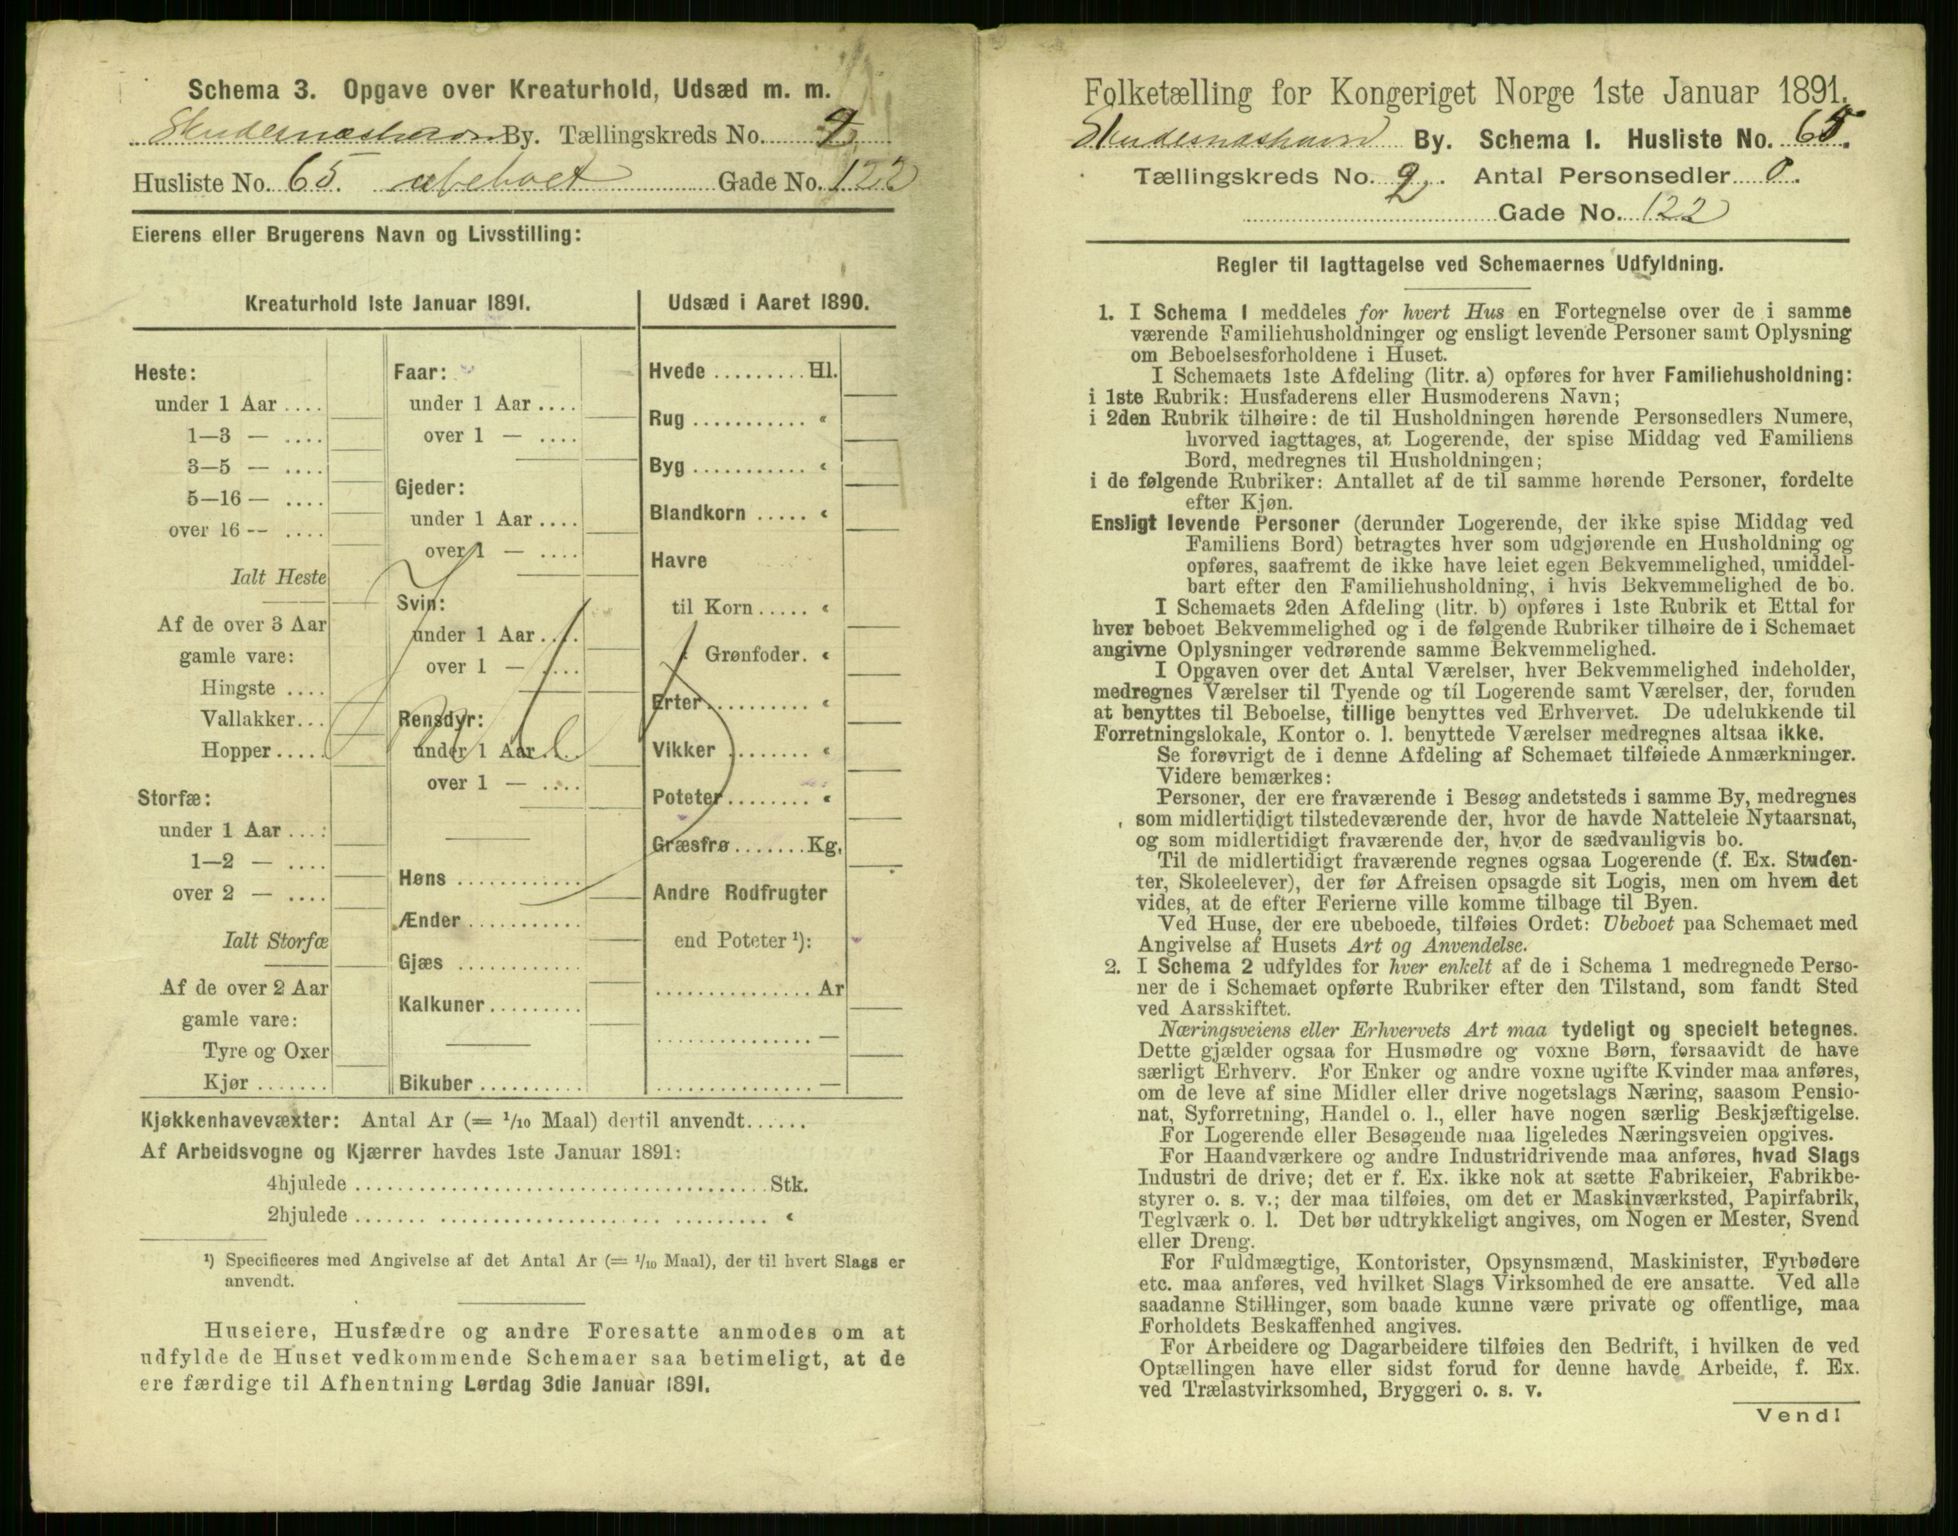 Schema 3. Opgave over Kreaturhold, Udsæd m. m.
Skudesnæshavn By. Tællingskreds No. 2
Husliste No. 65. ubeboet Gade No. 122
Eierens eller Brugerens Navn og Livsstilling:
Kreaturhold 1ste Januar 1891.
Heste:
under 1 Aar ....
1—3 — ....
3—5 — ....
5—16 — ....
over 16 -- ....
Ialt Heste
Af de over 3 Aar
gamle vare:
Hingste ....
Vallakker...
Hopper .....
Storfæ:
under 1 Aar ...:
1—2 — ....
over 2 — ....
Ialt Storfæ
Af de over 2 Aar
gamle vare:
Tyre og Oxer
Kjør .......
Faar:
under 1 Aar ....
over 1 — ....
Gjeder:
under 1 Aar ....
over 1 — ....
Svin:
under 1 Aar ....
over 1 — ....
Rensdyr:
under 1 Aar ....
over 1 — ....
Høns ............
Ænder ...........
Gjæs ............
Kalkuner.........
Bikuber ..........
Udsæd i Aaret 1890.
Hvede ......... Hl.
Rug ........... «
Byg ........... «
Blandkorn ..... «
Havre
til Korn ..... «
" Grønfoder. «
Erter.......... «
Vikker ........ «
Poteter........ «
Græsfrø ....... Kg.
Andre Rodfrugter
end Poteter ¹):
............... Ar
............... —
............... —
Kjøkkenhavevæxter: Antal Ar (= 1/10 Maal) dertil anvendt......
Af Arbeidsvogne og Kjærrer havdes 1ste Januar 1891:
4hjulede ..................................... Stk.
2hjulede ..................................... «
¹) Specificeres med Angivelse af det Antal Ar (= 1/10 Maal), der til hvert Slags er
anvendt.
Huseiere, Husfædre og andre Foresatte anmodes om at
udfylde de Huset vedkommende Schemaer saa betimeligt, at de
ere færdige til Afhentning Lørdag 3die Januar 1891.
Folketælling for Kongeriget Norge 1ste Januar 1891.
Skudesnæshavn By. Schema I. Husliste No. 65.
Tællingskreds No. 2. Antal Personsedler 0.
Gade No. 122
Regler til Iagttagelse ved Schemaernes Udfyldning.
1. I Schema 1 meddeles for hvert Hus en Fortegnelse over de i samme
værende Familiehusholdninger og ensligt levende Personer samt Oplysning
om Beboelsesforholdene i Huset.
I Schemaets 1ste Afdeling (litr. a) opføres for hver Familiehusholdning:
i 1ste Rubrik: Husfaderens eller Husmoderens Navn;
i 2den Rubrik tilhøire: de til Husholdningen hørende Personsedlers Numere,
hvorved iagttages, at Logerende, der spise Middag ved Familiens
Bord, medregnes til Husholdningen;
i de følgende Rubriker: Antallet af de til samme hørende Personer, fordelte
efter Kjøn.
Ensligt levende Personer (derunder Logerende, der ikke spise Middag ved
Familiens Bord) betragtes hver som udgjørende en Husholdning og
opføres, saafremt de ikke have leiet egen Bekvemmelighed, umiddel-
bart efter den Familiehusholdning, i hvis Bekvemmelighed de bo.
I Schemaets 2den Afdeling (litr. b) opføres i 1ste Rubrik et Ettal for
hver beboet Bekvemmelighed og i de følgende Rubriker tilhøire de i Schemaet
angivne Oplysninger vedrørende samme Bekvemmelighed.
I Opgaven over det Antal Værelser, hver Bekvemmelighed indeholder,
medregnes Værelser til Tyende og til Logerende samt Værelser, der, foruden
at benyttes til Beboelse, tillige benyttes ved Erhvervet. De udelukkende til
Forretningslokale, Kontor o. l. benyttede Værelser medregnes altsaa ikke.
Se forøvrigt de i denne Afdeling af Schemaet tilføiede Anmærkninger.
Videre bemærkes:
Personer, der ere fraværende i Besøg andetsteds i samme By, medregnes
som midlertidigt tilstedeværende der, hvor de havde Natteleie Nytaarsnat,
og som midlertidigt fraværende der, hvor de sædvanligvis bo.
Til de midlertidigt fraværende regnes ogsaa Logerende (f. Ex. Studen-
ter, Skoleelever), der før Afreisen opsagde sit Logis, men om hvem det
vides, at de efter Ferierne ville komme tilbage til Byen.
Ved Huse, der ere ubeboede, tilføies Ordet: Ubeboet paa Schemaet med
Angivelse af Husets Art og Anvendelse.
2. I Schema 2 udfyldes for hver enkelt af de i Schema 1 medregnede Perso-
ner de i Schemaet opførte Rubriker efter den Tilstand, som fandt Sted
ved Aarsskiftet.
Næringsveiens eller Erhvervets Art maa tydeligt og specielt betegnes.
Dette gjælder ogsaa for Husmødre og voxne Børn, forsaavidt de have
særligt Erhverv. For Enker og andre voxne ugifte Kvinder maa anføres,
om de leve af sine Midler eller drive nogetslags Næring, saasom Pensio-
nat, Syforretning, Handel o. l., eller have nogen særlig Beskjæftigelse.
For Logerende eller Besøgende maa ligeledes Næringsveien opgives.
For Haandværkere og andre Industridrivende maa anføres, hvad Slags
Industri de drive; det er f. Ex. ikke nok at sætte Fabrikeier, Fabrikbe-
styrer o. s. v.; der maa tilføies, om det er Maskinværksted, Papirfabrik,
Teglværk o. l. Det bør udtrykkeligt angives, om Nogen er Mester, Svend
eller Dreng.
For Fuldmægtige, Kontorister, Opsynsmænd, Maskinister, Fyrbødere
etc. maa anføres, ved hvilket Slags Virksomhed de ere ansatte. Ved alle
saadanne Stillinger, som baade kunne være private og offentlige, maa
Forholdets Beskaffenhed angives.
For Arbeidere og Dagarbeidere tilføies den Bedrift, i hvilken de ved
Optællingen have eller sidst forud for denne havde Arbeide, f. Ex.
ved Trælastvirksomhed, Bryggeri o. s. v.
Vend!